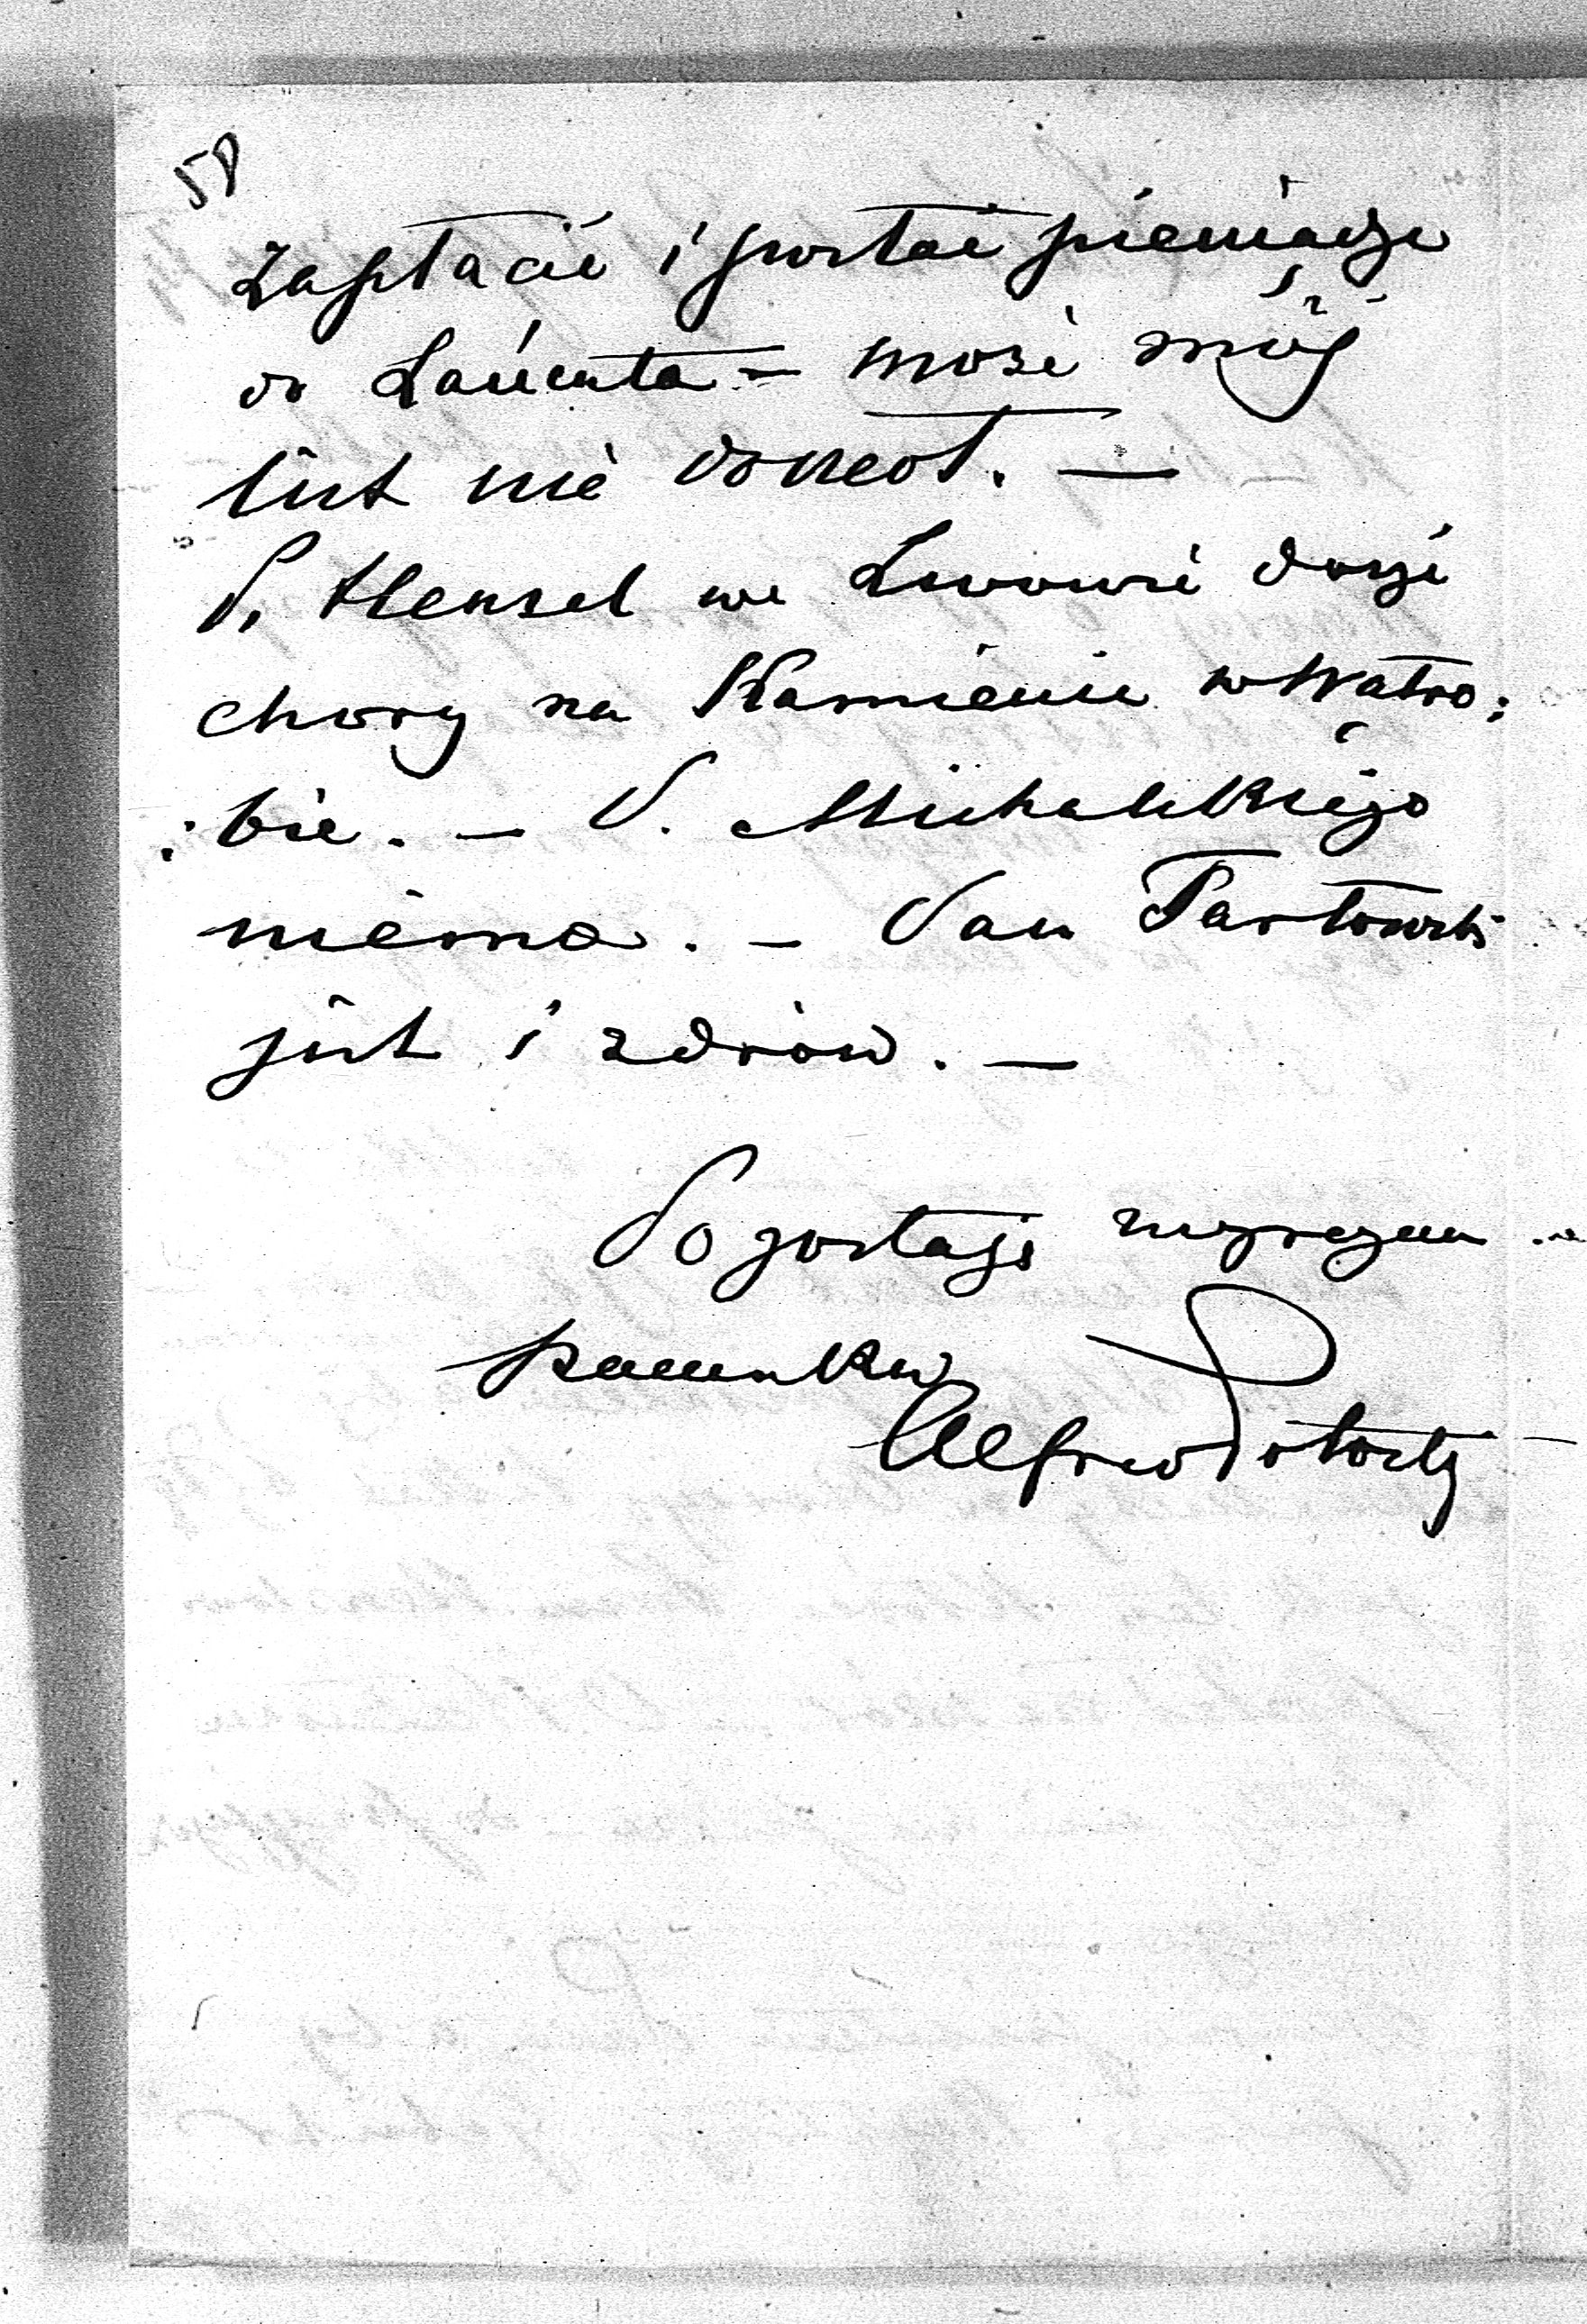 58
zapłacić i posłać pieniądze
do Łańcuta — może mój
list nie doszedł. —
P. Hensel we Lwowie dosyć
chory na Kamienie w Wątro:
:bie. — P. Michalskiego
niéma. — Pan
jest i zdrów. —
Pozostaję z wyrazem
szacunku
Alfred Potocki